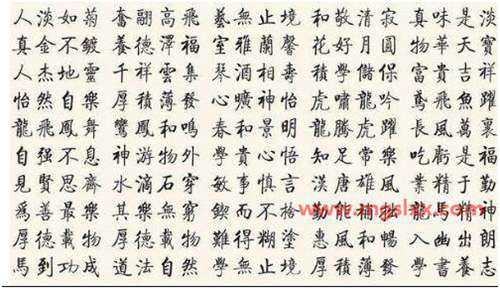 人淡如菊 奮翮高飛 藝無止境 和敬清寂 真味是淡
真金不鍍 養德澤福 室雅蘭馨 花好月圓 物華天寶
人杰地靈 千祥雲集 琴酒相壽 積學儲保 富貴吉祥
怡然自樂 厚積薄發 心曠神怡 虎嘯龍吟 鳶飛魚躍
龍飛鳳舞 鸞鳳和鳴 春和景明 龍騰虎躍 長風萬裏
自强不息 神游物外 學貴心悟 知足常樂 吃虧是福
見賢思齊 水滴石穿 敏事慎言 漢唐雄風 精于勤
爲善最樂 其樂無窮 而不 勤 神
厚德載物 難得糊塗 惠風和暢 入幽出朗
馬到功成 道法自然 學無止境 厚積薄發 學書養志